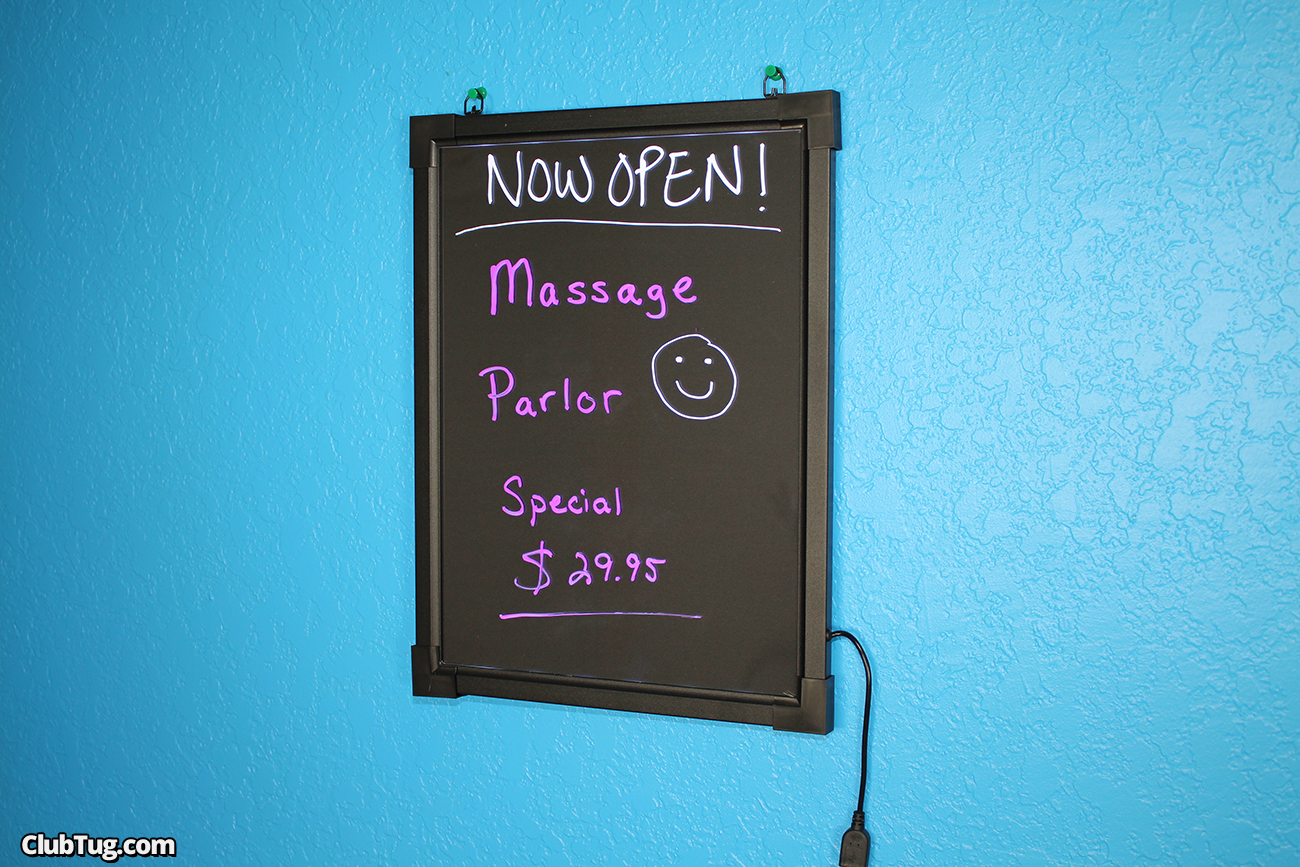 NOW OPEN!
Massage
Parlor
Special
$29.95
ClubTug.com